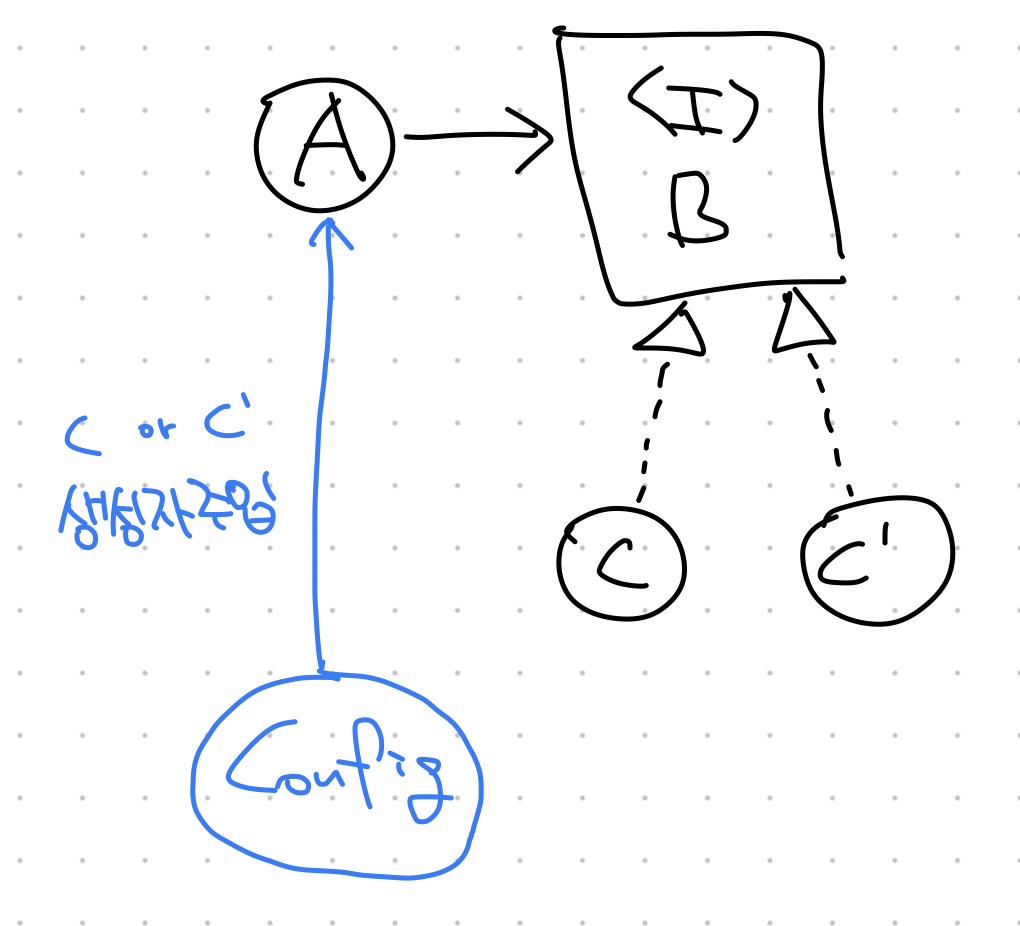 A
<I>
B
C or C'
생성자 주입
C
C'
Config